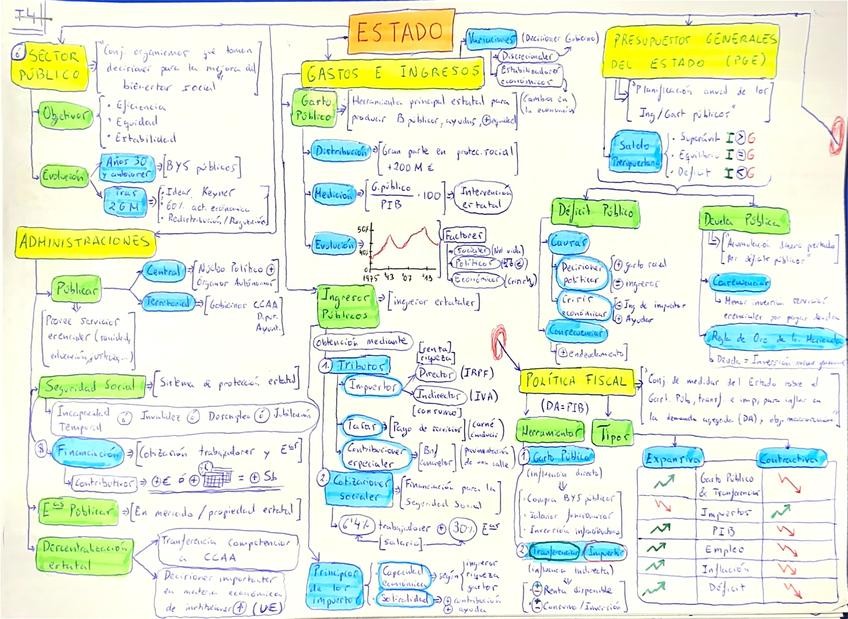 T4
ESTADO
SECTOR
PÚBLICO
"Conj. organismos que toman
decisiones para la mejora del
bienestar social"
Objetivos
• Eficiencia
• Equidad
• Estabilidad
Evolución
Años 30
y anteriores
BYS públicos
Tras
2GM
• Ideas Keynes
• Redistribución/Regulación
ADMINISTRACIONES
Públicas
Central
Núcleo Político +
Organismos Autónomos
Territorial
Gobiernos CCAA
Dipu.
Ayunt.
Provee servicios
esenciales (sanidad,
educación, justicia...)
Seguridad Social
Sistema de protección estatal
Incapacidad
Temporal
ó Invalidez ó Desempleo ó Jubilación
Financiación
Cotización trabajadores y Eas
Contributivas
Eas Públicas
En mercado / propiedad estatal
Descentralización
estatal
Tranferencia competencias
a CCAA
Decisiones importantes
en materia económica
de instituciones + (UE)
GASTOS E INGRESOS
Variaciones
(Decisiones Gobierno)
Discrecionales
Estabilizadores
económicos
(cambios en
la economía)
Gasto
Público
Herramienta principal estatal para
producir B públicos, ayudas, + equidad
Distribución
Gran parte en protec. social
+200 M €
Medición
G. público
PIB
· 100
Intervención
estatal
Evolución
1975 '93 '07 '93
Factores
Sociales (Nivel vida)
Políticos
Económicos (crisis)
Ingresos
Públicos
ingresos estatales
obtención mediante
1. Tributos
Impuestos
[renta]
riqueza
Directos (IRPF)
Indirectos (IVA)
(consumo)
Tasas
Pago de servicios
Contribuciones
especiales
pavimentación
de una calle
2 Cotizaciones
sociales
Financiación para la
Seguridad Social
6'4% trabajadores + 30% Eas
[salario]
Principios
de los
impuestos
Capacidad
económica
según
ingresos
riqueza
gastos
Solidaridad
+ contribución
+ ayuda
PRESUPUESTOS GENERALES
DEL ESTADO (PGE)
"Planificación anual de los
Ing/Gast públicos"
Saldo
Presupuestario
• Superávit I > G
• Equilibrio I = G
• Déficit I < G
Déficit Público
Causas
Decisiones
políticas
+ gasto social
- ingresos
Crisis
económicas
- Ing. de impuestos
+ Ayudas
Consecuencias
+ endeudamiento
Deuda Pública
"Acumulación dinero prestado
por déficits públicos"
Consecuencias
Menor inversión servicios
esenciales por pagar deuda
Regla de Oro de la Hacienda
POLÍTICA FISCAL
(DA=PIB)
"Conj. de medidas del Estado sobre el
Gast. Púb, transf e imp, para influir en
la demanda agregada (DA), obj. macroeconómicos"
Herramientas
Tipos
1 Gasto Público
(influencia directa)
• Compra BYS públicos
• Salarios funcionarios
• Inversión infraestructuras
2 Tranferencias / Impuestos
(influencia indirecta)
Renta disponible
Consumo / Inversión
Expansiva
Contractiva
Gasto Público
& Tranferencias
Impuestos
PIB
Empleo
Inflación
Déficit